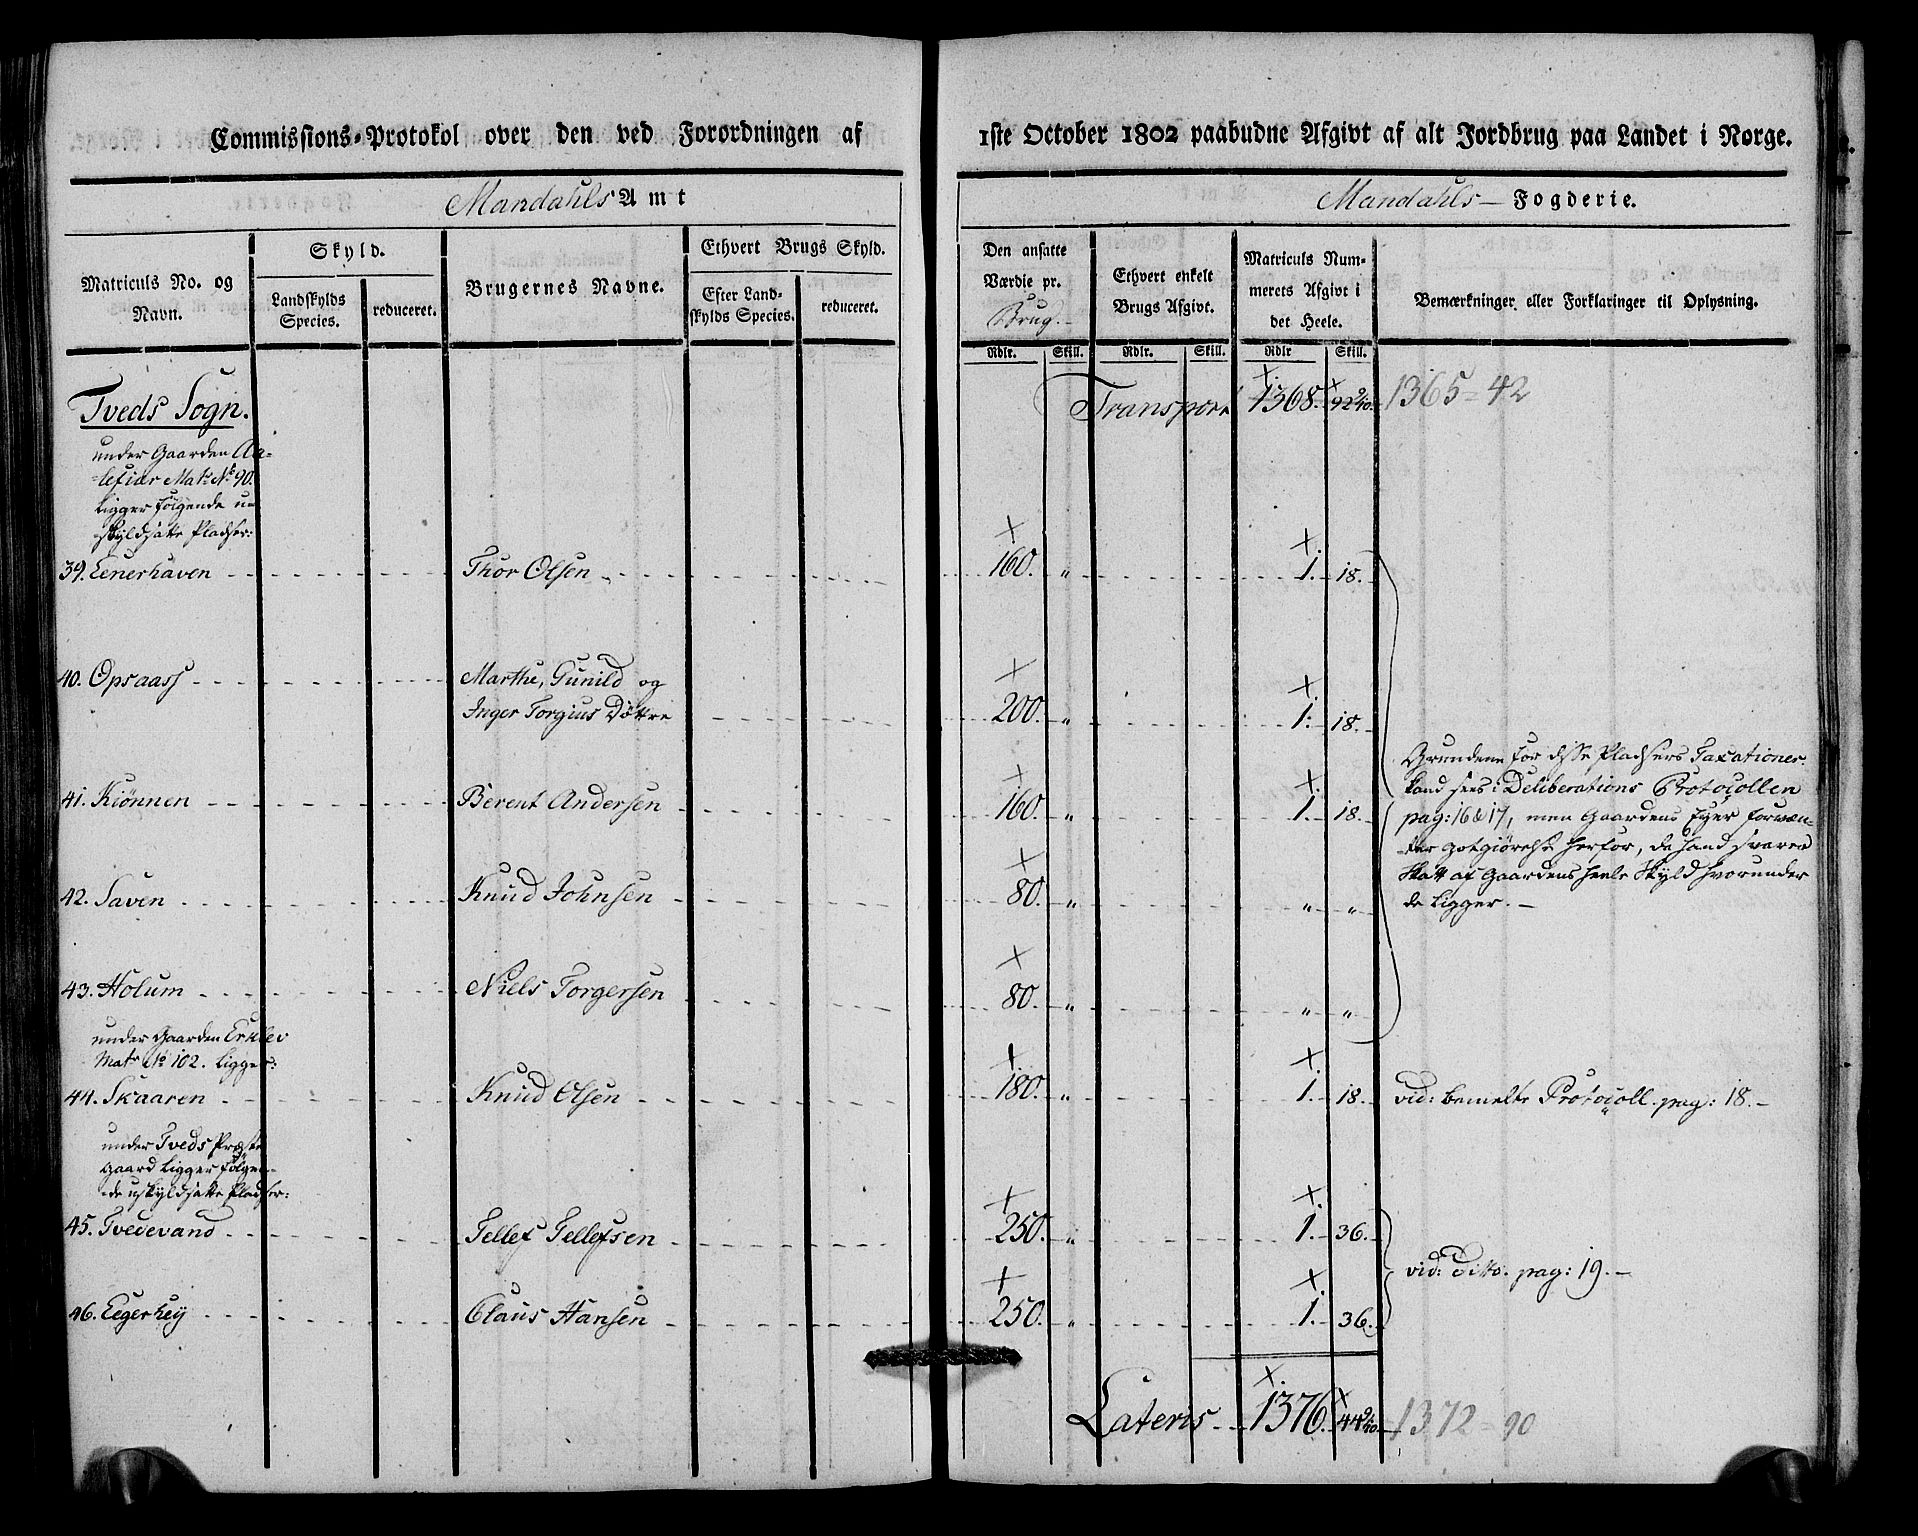 Commissions-Protokol over den ved Forordningen af
1ste October 1802 paabudne Afgivt af alt Jordbrug paa Landet i Norge.
Mandahls Amt
Mandahls Fogderie.
Matriculs No. og Navn.
Skyld.
Landskylds Species.
reduceret.
Brugernes Navne.
Ethvert Brugs Skyld.
Efter Landskylds Species.
reduceret.
Den ansatte Værdie pr. Brug.
Ethvert enkelt Brugs Afgivt.
Matriculs Nummerets Afgivt i det Heele.
Bemærkninger eller Forklaringer til Oplysning.
Rdlr. Skill. Rdlr. Skill. Rdlr Skill.
Tveds Sogn.
Transport 1368. 92 1365 = 42
under Gaarden Aa-
lefiær Matr. No. 90.
ligger følgende u-
skyldsatte Pladser:
39. Eenerhaven Thor Olsen 160. " 1. 18.
40. Opsaass Marthe, Gunild og
Inger Torgius Døttre 200. " 1. 18.
Grundene for disse Pladsers Taxationer
kand sees i Deliberations Protocollen
41. Kiønnen Berent Andersen 160. " 1. 18.
pag: 16 & 17, men Gaardens Eyer forvæn-
ter godtgiørelse herfor, da hand svarer
Skatt af Gaardens heele Skyld hvorunder
42. Saven Knud Johnsen 80. " " "
de ligger.
43. Holum Niels Torgersen 80. " " "
under Gaarden Erklev
Matr No 102. ligger:
44. Skaaren Knud Olsen 180. " 1. 18. vid: bemelte Protocoll. pag: 18.
under Tveds Præste
gaard ligger følgen-
de uskyldsatte Pladser:
45. Tvedevand Tellef Tellefsen 250. " 1. 36.
vid: Ditto. pag: 19.
46. Eegerhey Claus Hansen 250. " 1. 36.
Lateris 1376. 44 1372 = 90